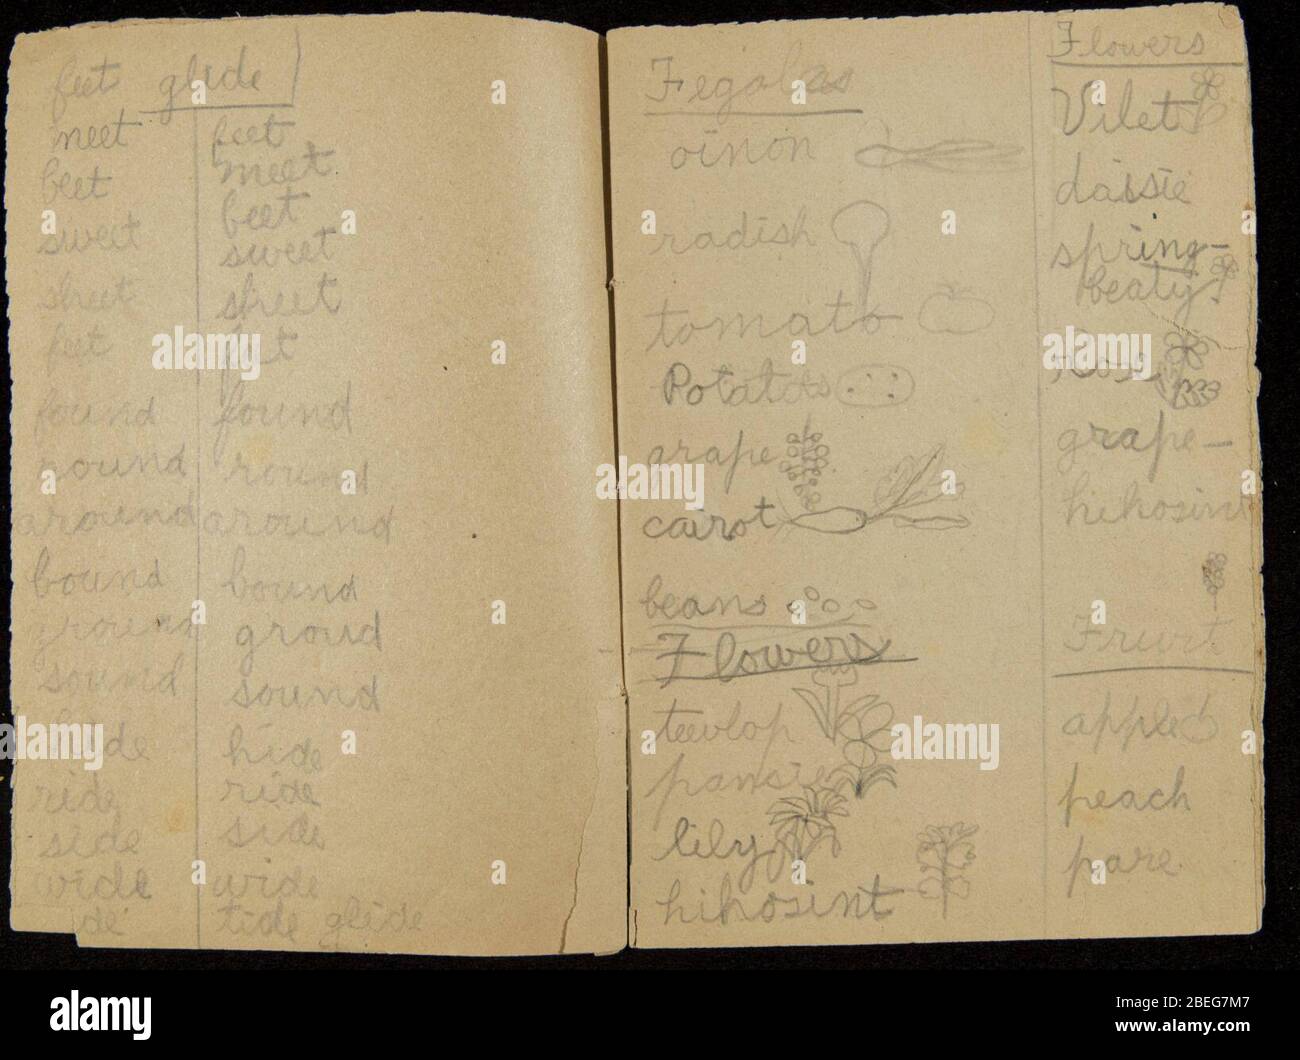 feet glide
meet
beet
sweet
sheet
feet
found
round
around
bound
ground
sound
hide
ride
side
wide
ide
feet
meet
beet
sweet
sheet
feet
found
round
around
bound
groud
sound
hide
ride
side
wide
tide glide
Fegolas
oinon
radish
tomato
Potatoes
grape
carot
beans
Flowers
teevlop
pansie
lily
hihosint
Flowers
Vilet
daisie
spring-
beaty
rose
grape-
hihosint
Fruit
apple
peach
pare
alamy
Image ID: 2BEG7M7
www.alamy.com